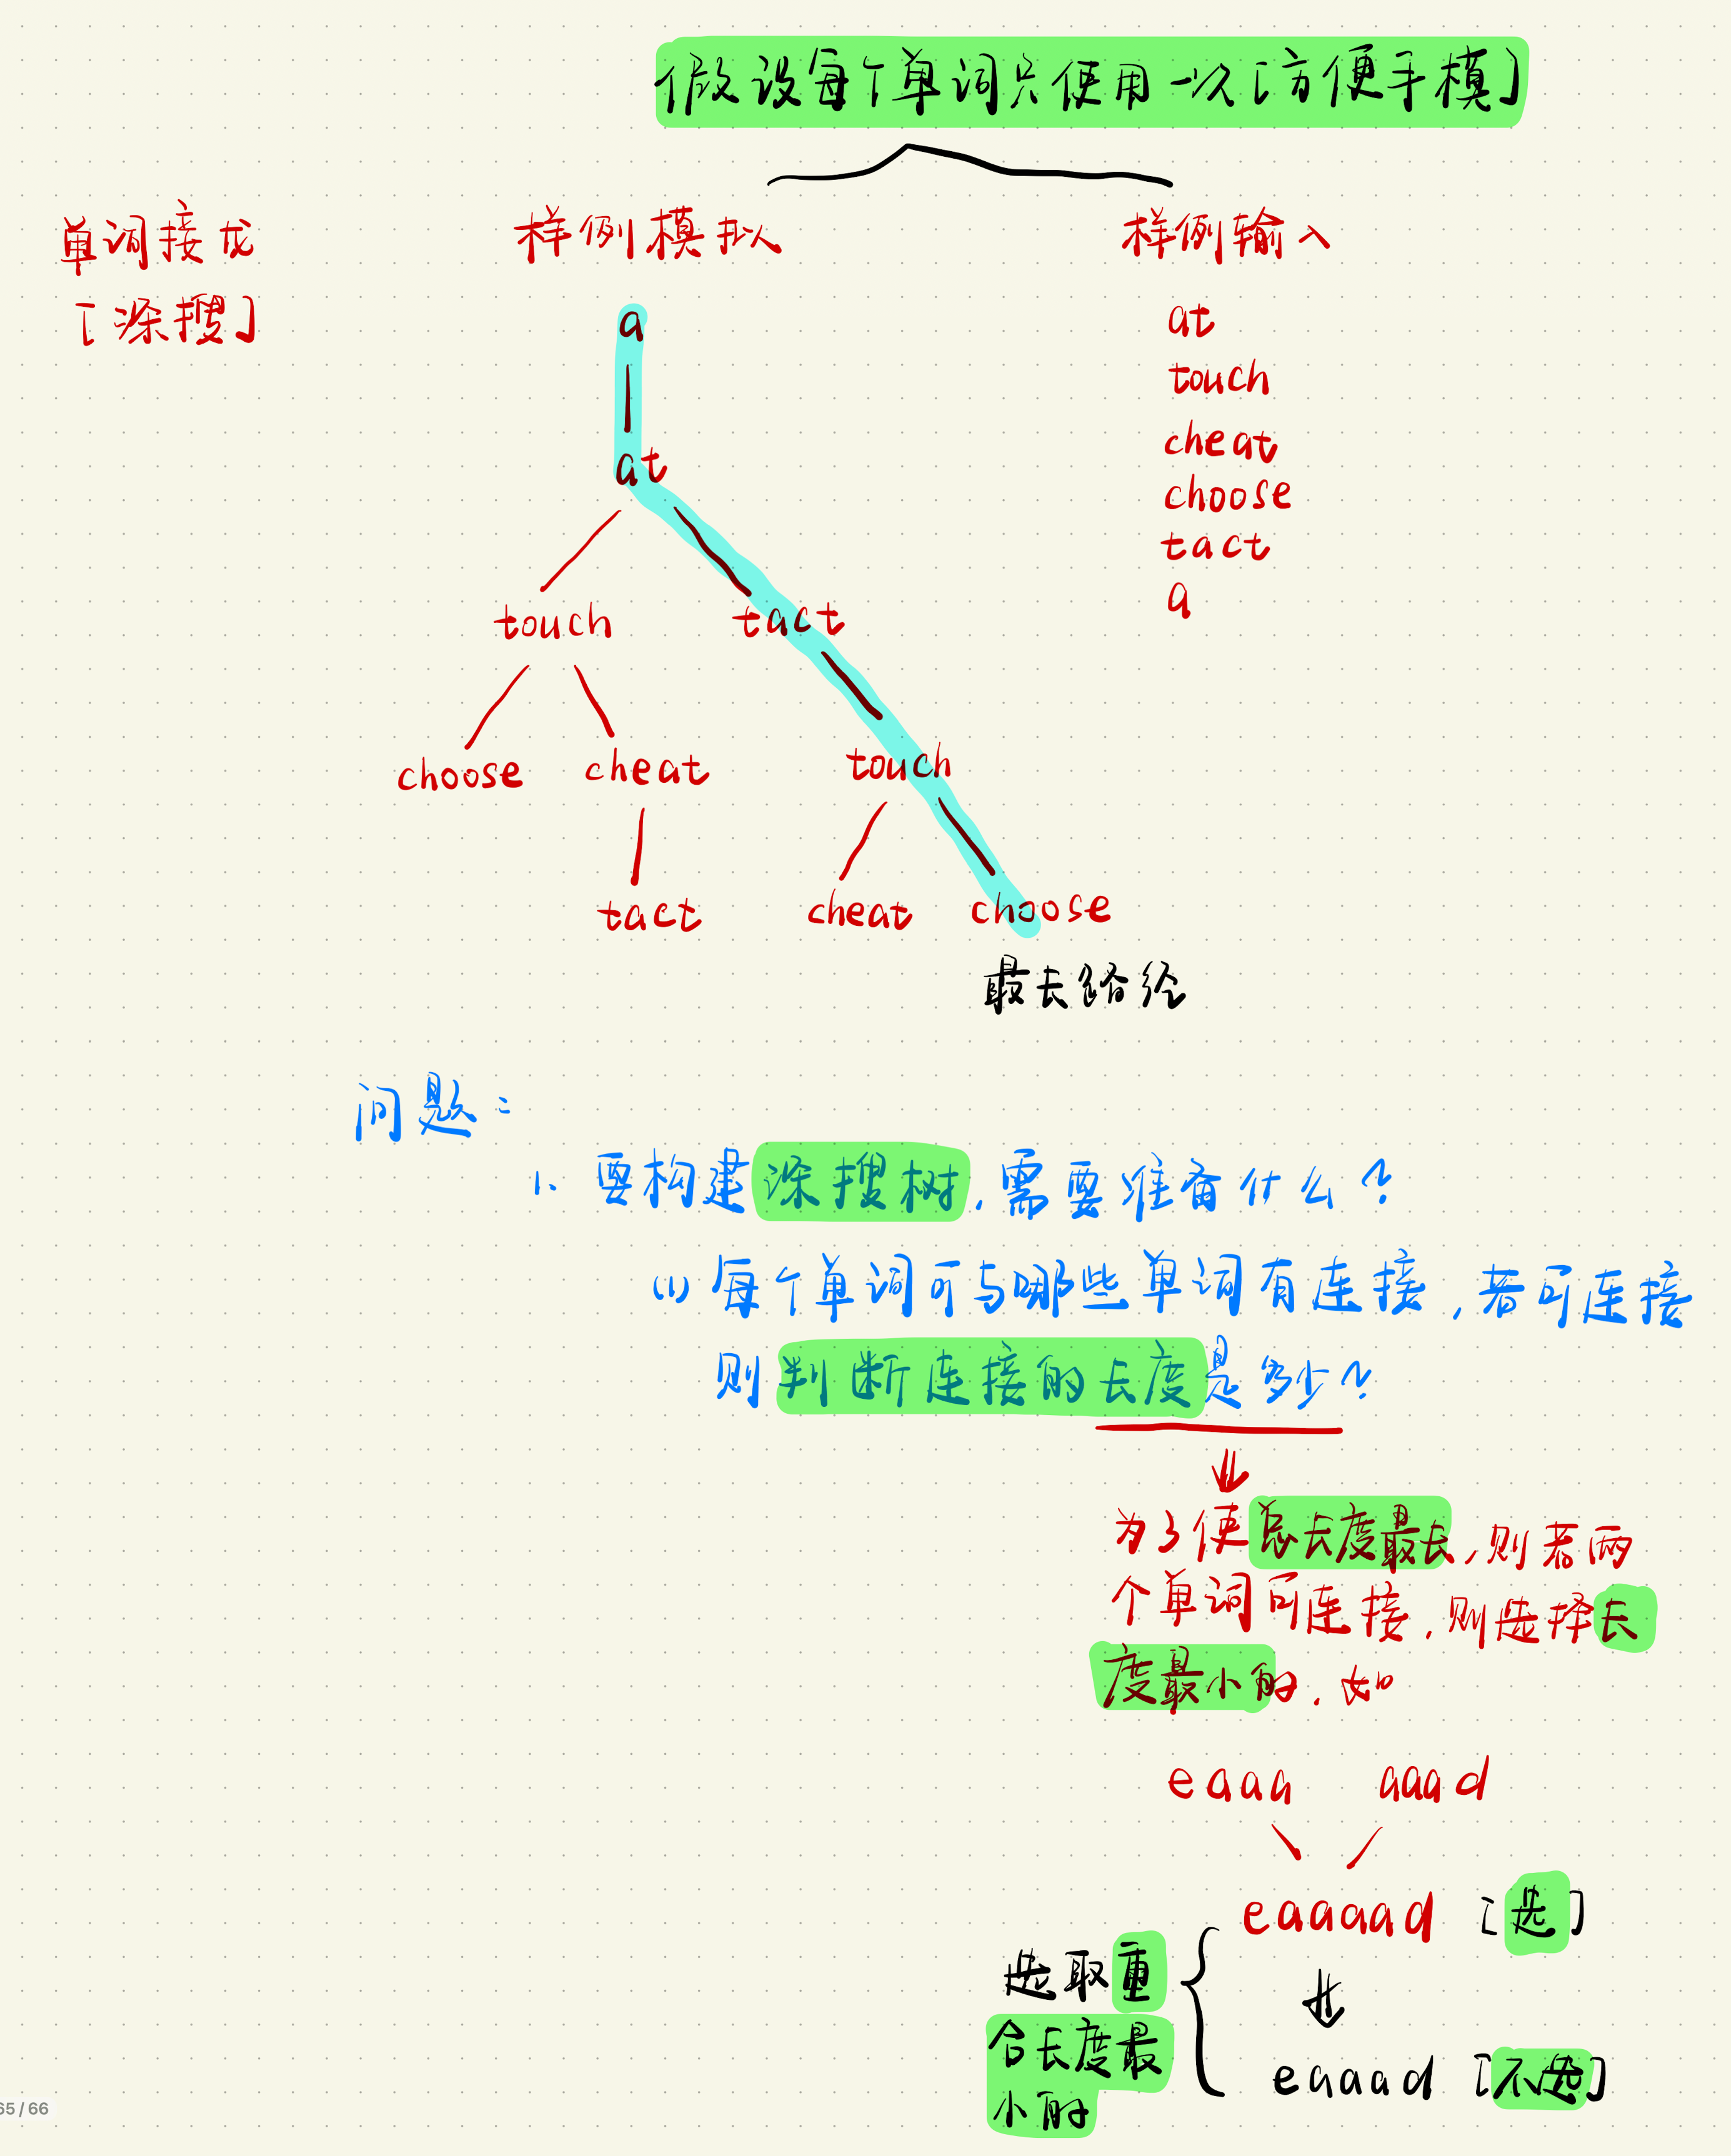 假设每个单词只使用一次[方便手模]
单词接龙
[深搜]
样例模拟
样例输入
a
at
touch tact
choose cheat touch
tact cheat choose
最长路径
at
touch
cheat
choose
tact
a
问题:
1、要构建深搜树,需要准备什么?
(1)每个单词可与哪些单词有连接,若可连接
则判断连接的长度是多少?
为了使总长度最长,则若两
个单词可连接,则选择长
度最小的.如
eaaa aaad
eaaaad [选]
选取重
合长度最
小的
eaaad [不选]
65/66